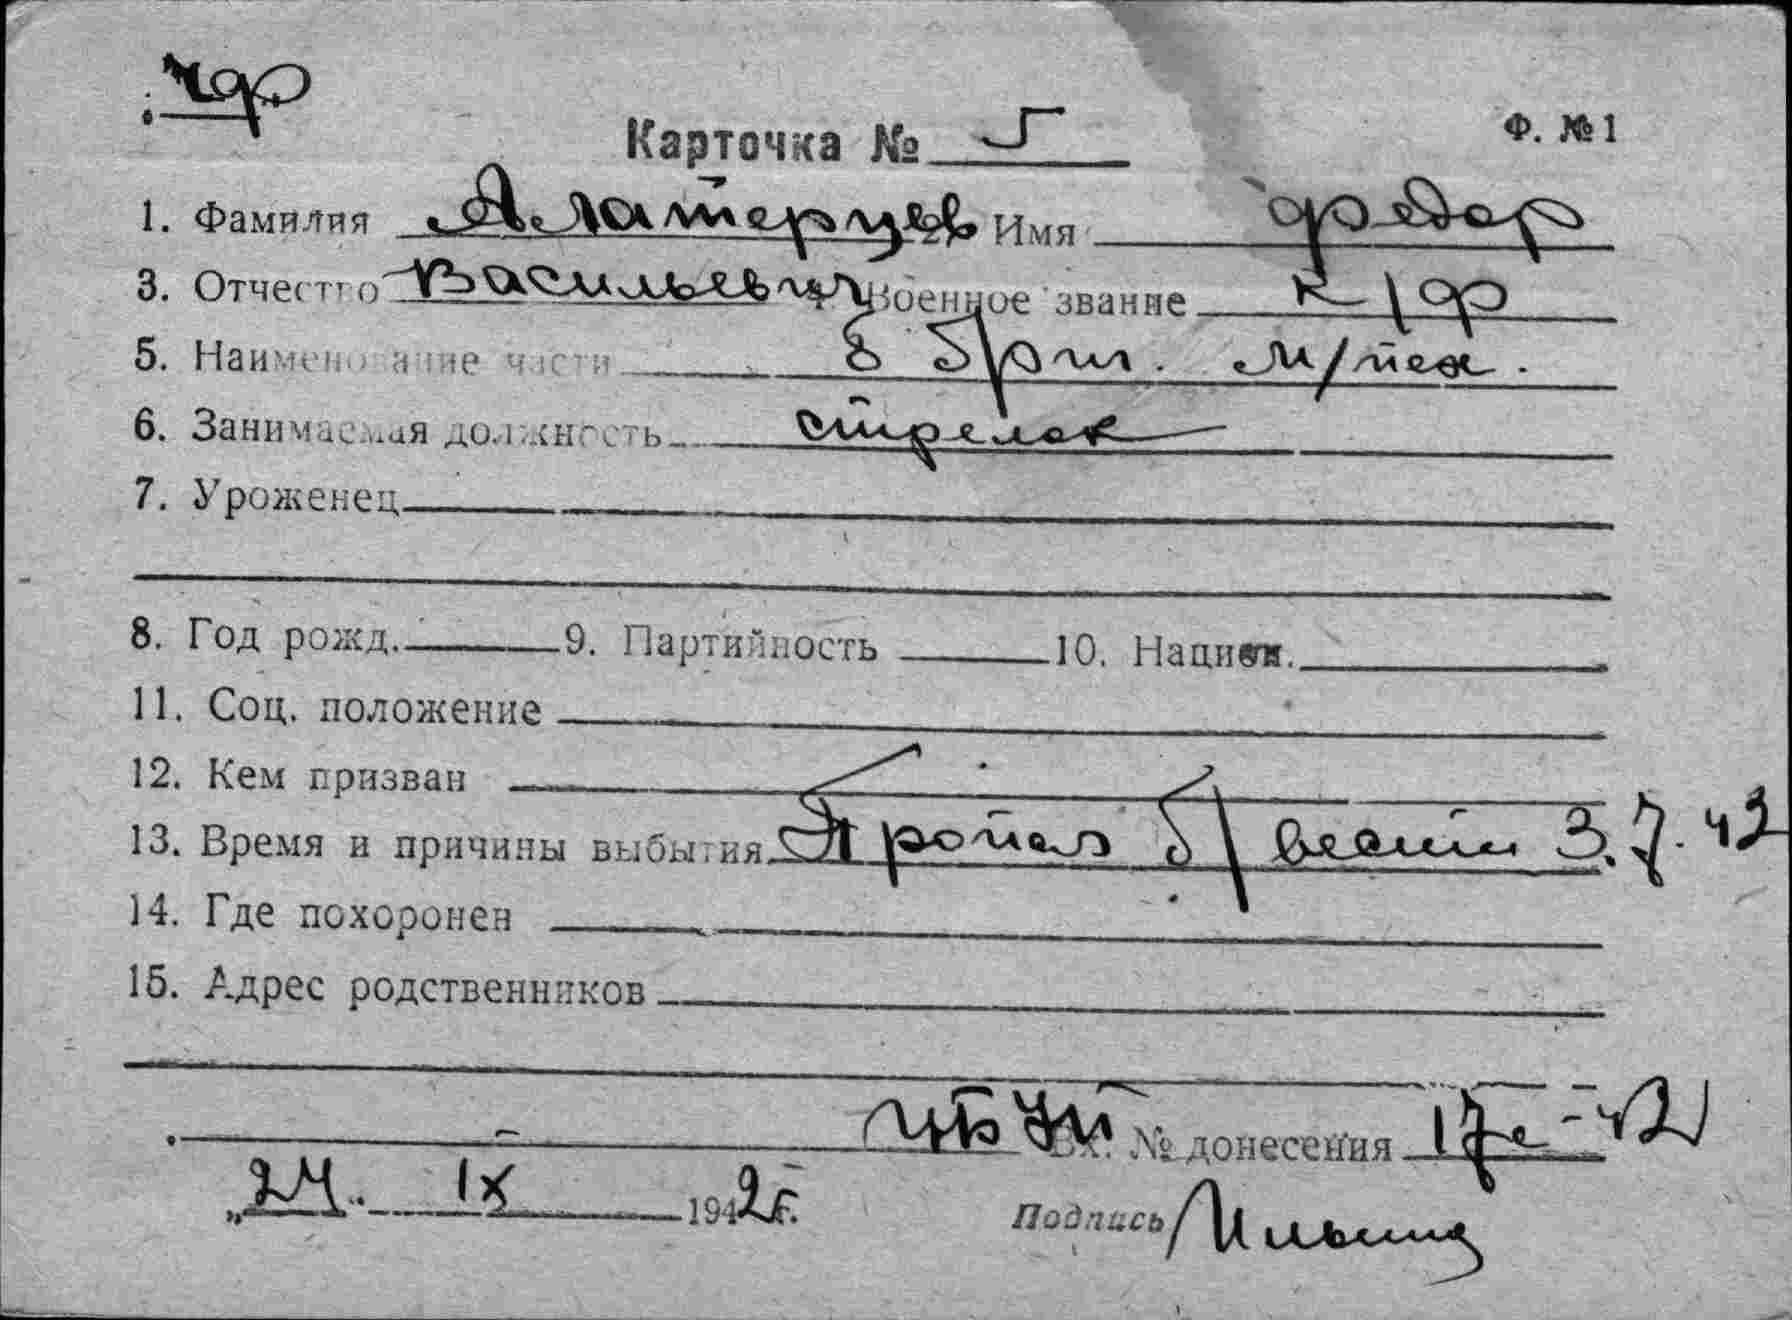 чф
Карточка № 5 Ф. №1
1. Фамилия Алатерцев Имя Федор
3. Отчество Васильевич Военное звание к/ф
5. Наименование части 8 б/риг. м/пех.
6. Занимаемая должность стрелок
7. Уроженец
8. Год рожд. 9. Партийность 10. Национ.
11. Соц. положение
12. Кем призван
13. Время и причины выбытия Пропал б/вести 3.7.42
14. Где похоронен
15. Адрес родственников
Вх. № донесения 17с-42
„24. IX 1942г.
Подпись Ильина